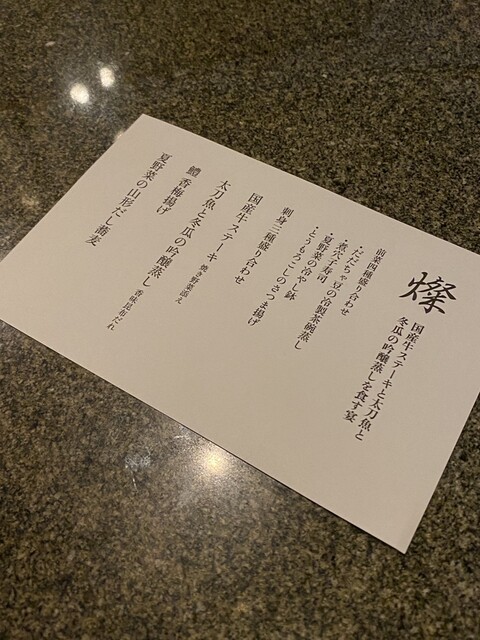 燦
国産牛ステーキと太刀魚と
冬瓜の吟醸蒸しを食す宴
前菜四種盛り合わせ
・だだちゃ豆の冷製茶碗蒸し
・煮穴子寿司
・夏野菜の冷やし鉢
・とうもろこしのさつま揚げ
刺身三種盛り合わせ
国産牛ステーキ 焼き野菜添え
太刀魚と冬瓜の吟醸蒸し 香味昆布だれ
鱧香梅揚げ
夏野菜の山形だし蕎麦